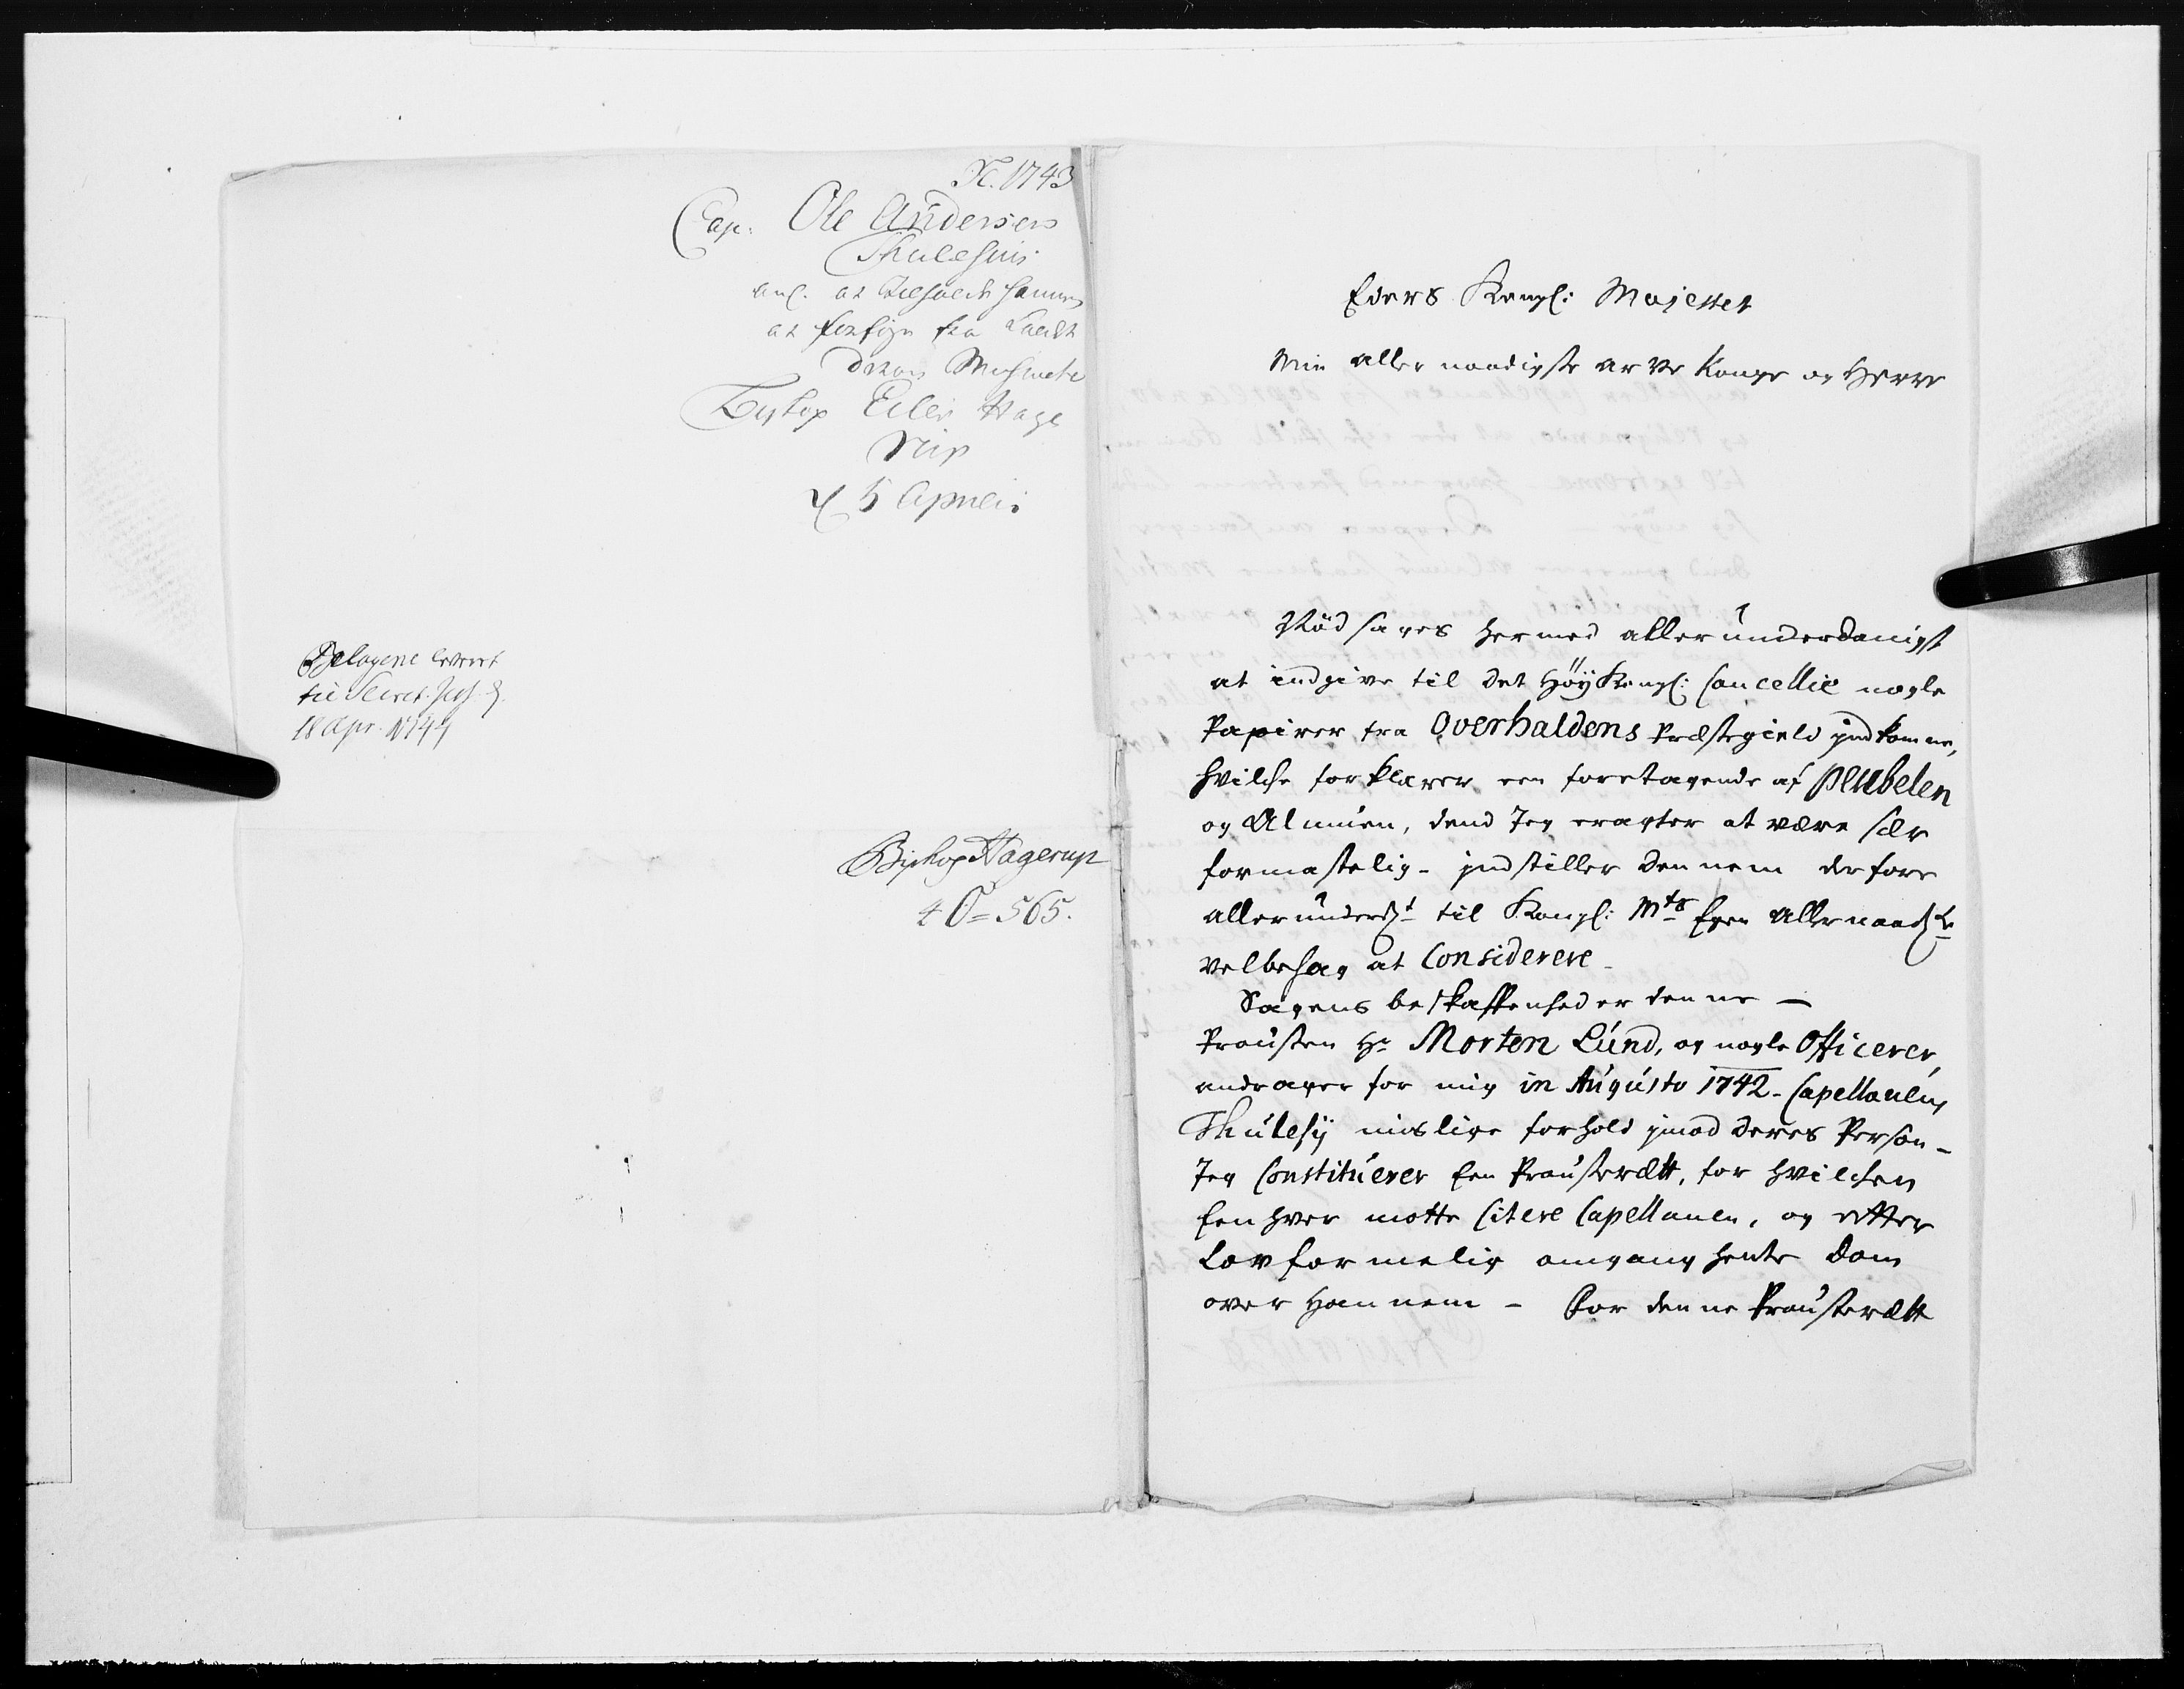 1743
Cap. Ole Andersen
Thulesius
at
at fra
Biskop Eiler Hage
rup
5 Aprilis
Bilagene leveret
til Secret.
18 Apr. 1744
Bishop Hagerup
4 O = 565.
Eders Kongl: Majestet
Min allernaadigste arve Konge og Herre
Nødsages hermed allerunderdanigst
at indgive til det Høy Kongl: Cancellie nogle
Papirer fra Overhaldens Præstegield indkomne,
hvilche forklarer een foretagende af Peubelen
og Almuen, dend Jeg eragter at være sær
formastelig - indstiller dennem derfore
allerunderdst til Kongl: Mts Egen allernaadste
velbehag at Considerere -
Sagens beskaffenhed er denne -
Prousten Hr Morten Lund, og nogle Officerer,
andrager for mig in Augusto 1742 - Capellanens
Thulesij mislige forhold imod deres Person -
Jeg Constituerer Een Prousteræt, for hvilchen
Een hver motte Citere Capellanen, og efter
Lovformelig omgang hente Dom
over Hannem - For denne Prousteræt